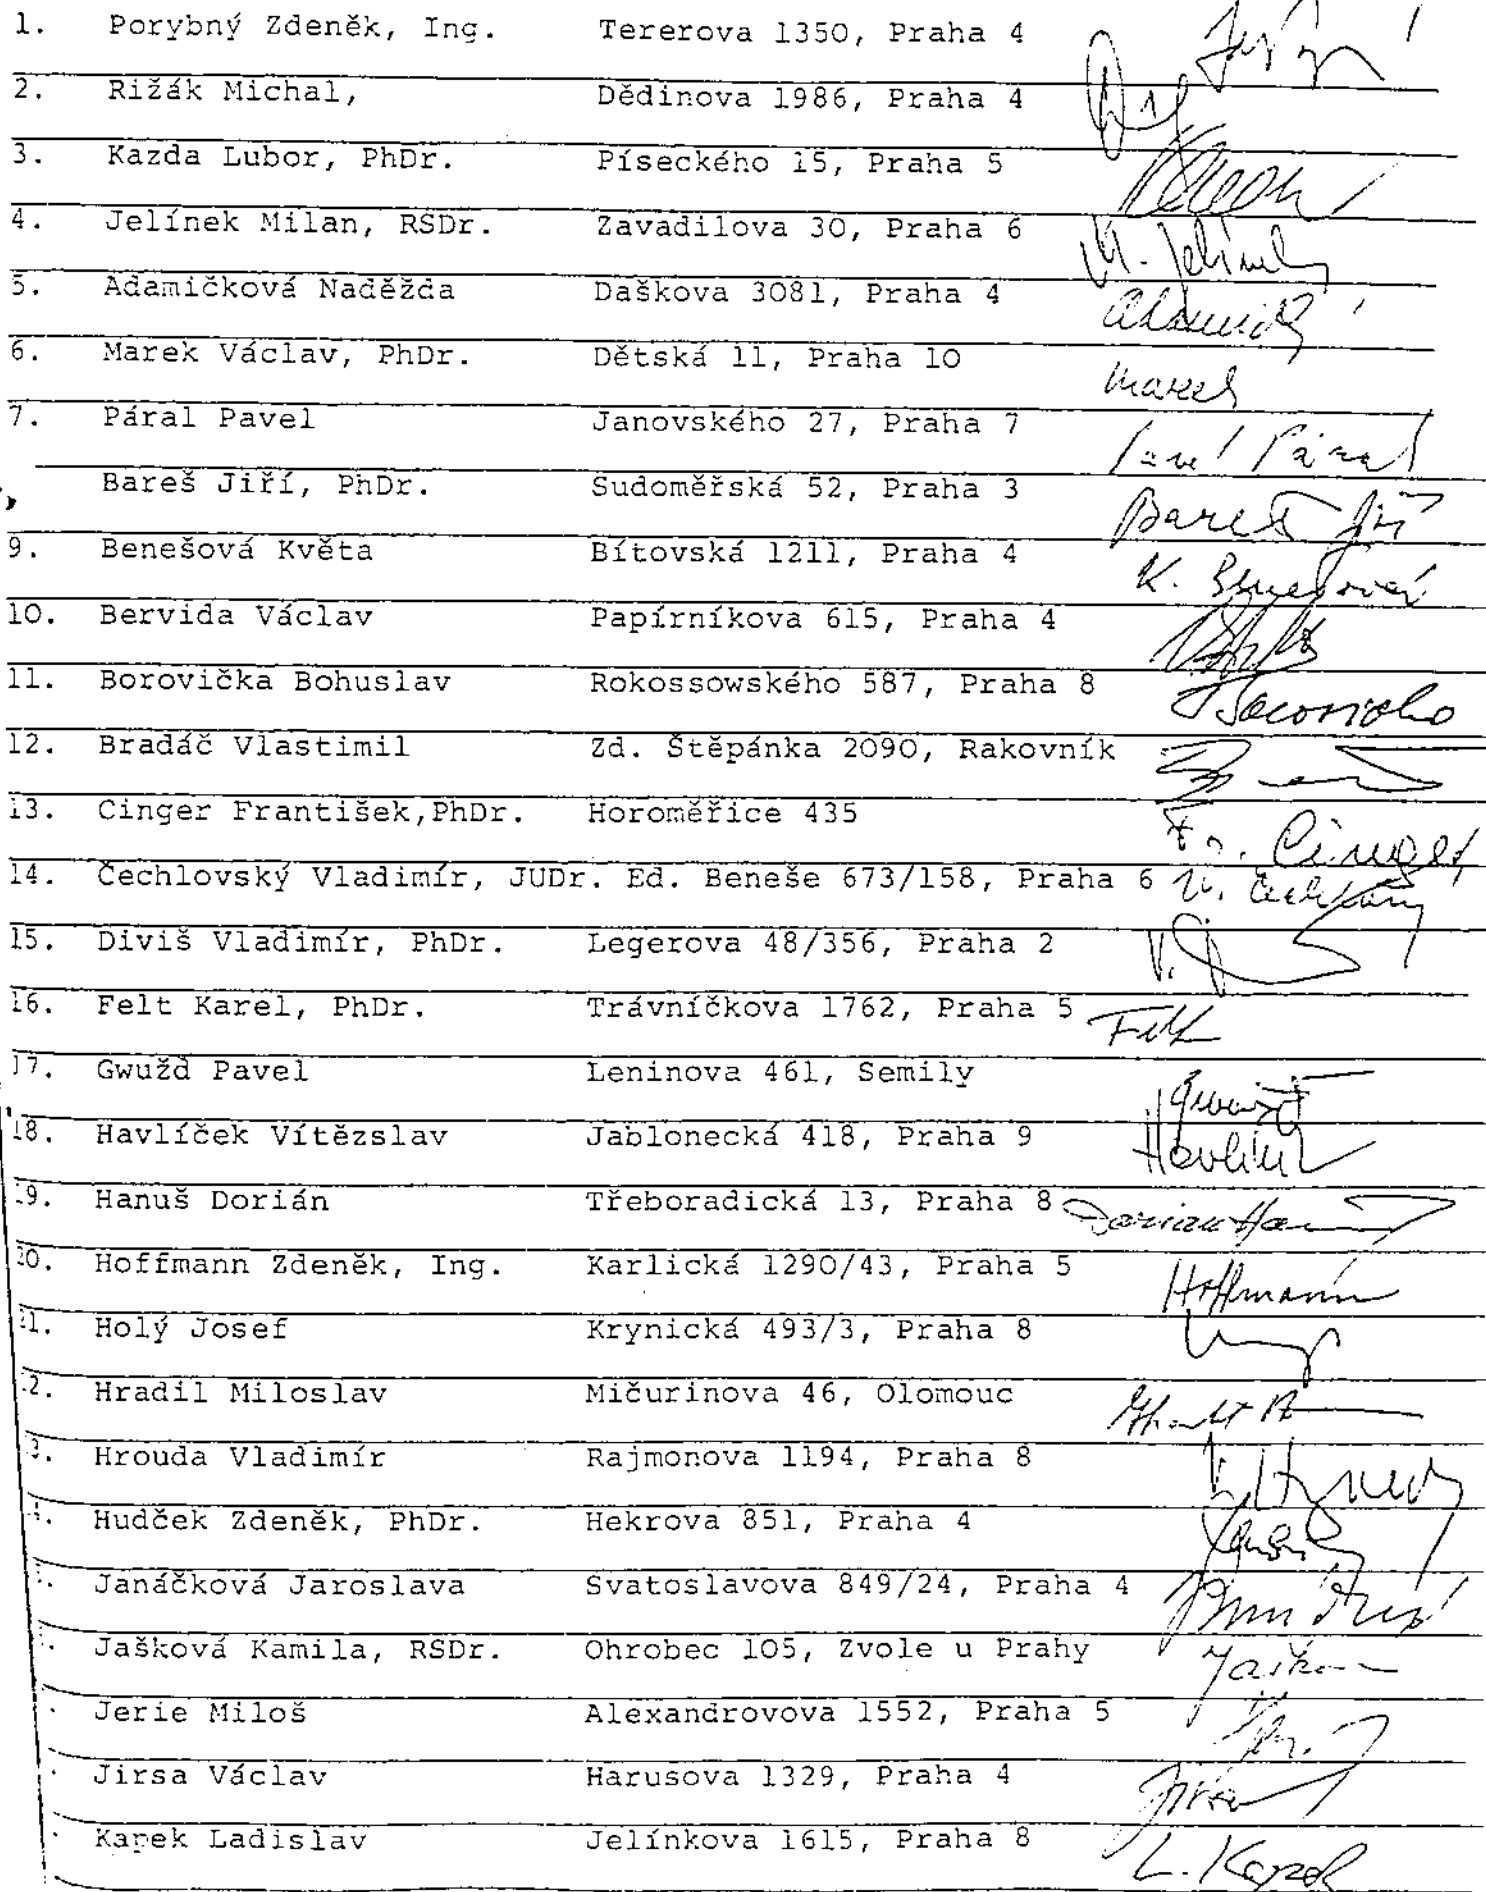 1. Porybný Zdeněk, Ing. Tererova 1350, Praha 4
2. Rižák Michal, Dědinova 1986, Praha 4
3. Kazda Lubor, PhDr. Píseckého 15, Praha 5
4. Jelínek Milan, RSDr. Zavadilova 30, Praha 6 M. Jelínek
5. Adamičková Naděžda Daškova 3081, Praha 4
6. Marek Václav, PhDr. Dětská 11, Praha 10 Marek
7. Páral Pavel Janovského 27, Praha 7 Pavel Páral
Bareš Jiří, PhDr. Sudoměřská 52, Praha 3 Bareš Jiří
9. Benešová Květa Bítovská 1211, Praha 4 K. Benešová
10. Bervida Václav Papírníkova 615, Praha 4
11. Borovička Bohuslav Rokossowského 587, Praha 8
12. Bradáč Vlastimil Zd. Štěpánka 2090, Rakovník
13. Cinger František,PhDr. Horoměřice 435 Fr. Cinger
14. Čechlovský Vladimír, JUDr. Ed. Beneše 673/158, Praha 6
15. Diviš Vladimír, PhDr. Legerova 48/356, Praha 2
16. Felt Karel, PhDr. Trávníčkova 1762, Praha 5 Felt
17. Gwužd Pavel Leninova 461, Semily
18. Havlíček Vítězslav Jablonecká 418, Praha 9
19. Hanuš Dorián Třeboradická 13, Praha 8
20. Hoffmann Zdeněk, Ing. Karlická 1290/43, Praha 5 Hoffmann
21. Holý Josef Krynická 493/3, Praha 8
2. Hradil Miloslav Mičurinova 46, Olomouc
3. Hrouda Vladimír Rajmonova 1194, Praha 8
4. Hudček Zdeněk, PhDr. Hekrova 851, Praha 4
Janáčková Jaroslava Svatoslavova 849/24, Praha 4
Jašková Kamila, RSDr. Ohrobec 105, Zvole u Prahy
Jerie Miloš Alexandrovova 1552, Praha 5
Jirsa Václav Harusova 1329, Praha 4 Jirsa
Kapek Ladislav Jelínkova 1615, Praha 8 L. Kapek